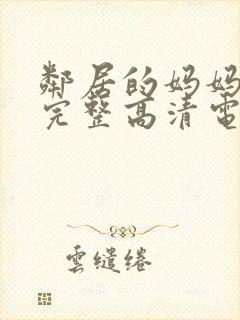 鄰居的妈妈
完整高清電
雲繾绻